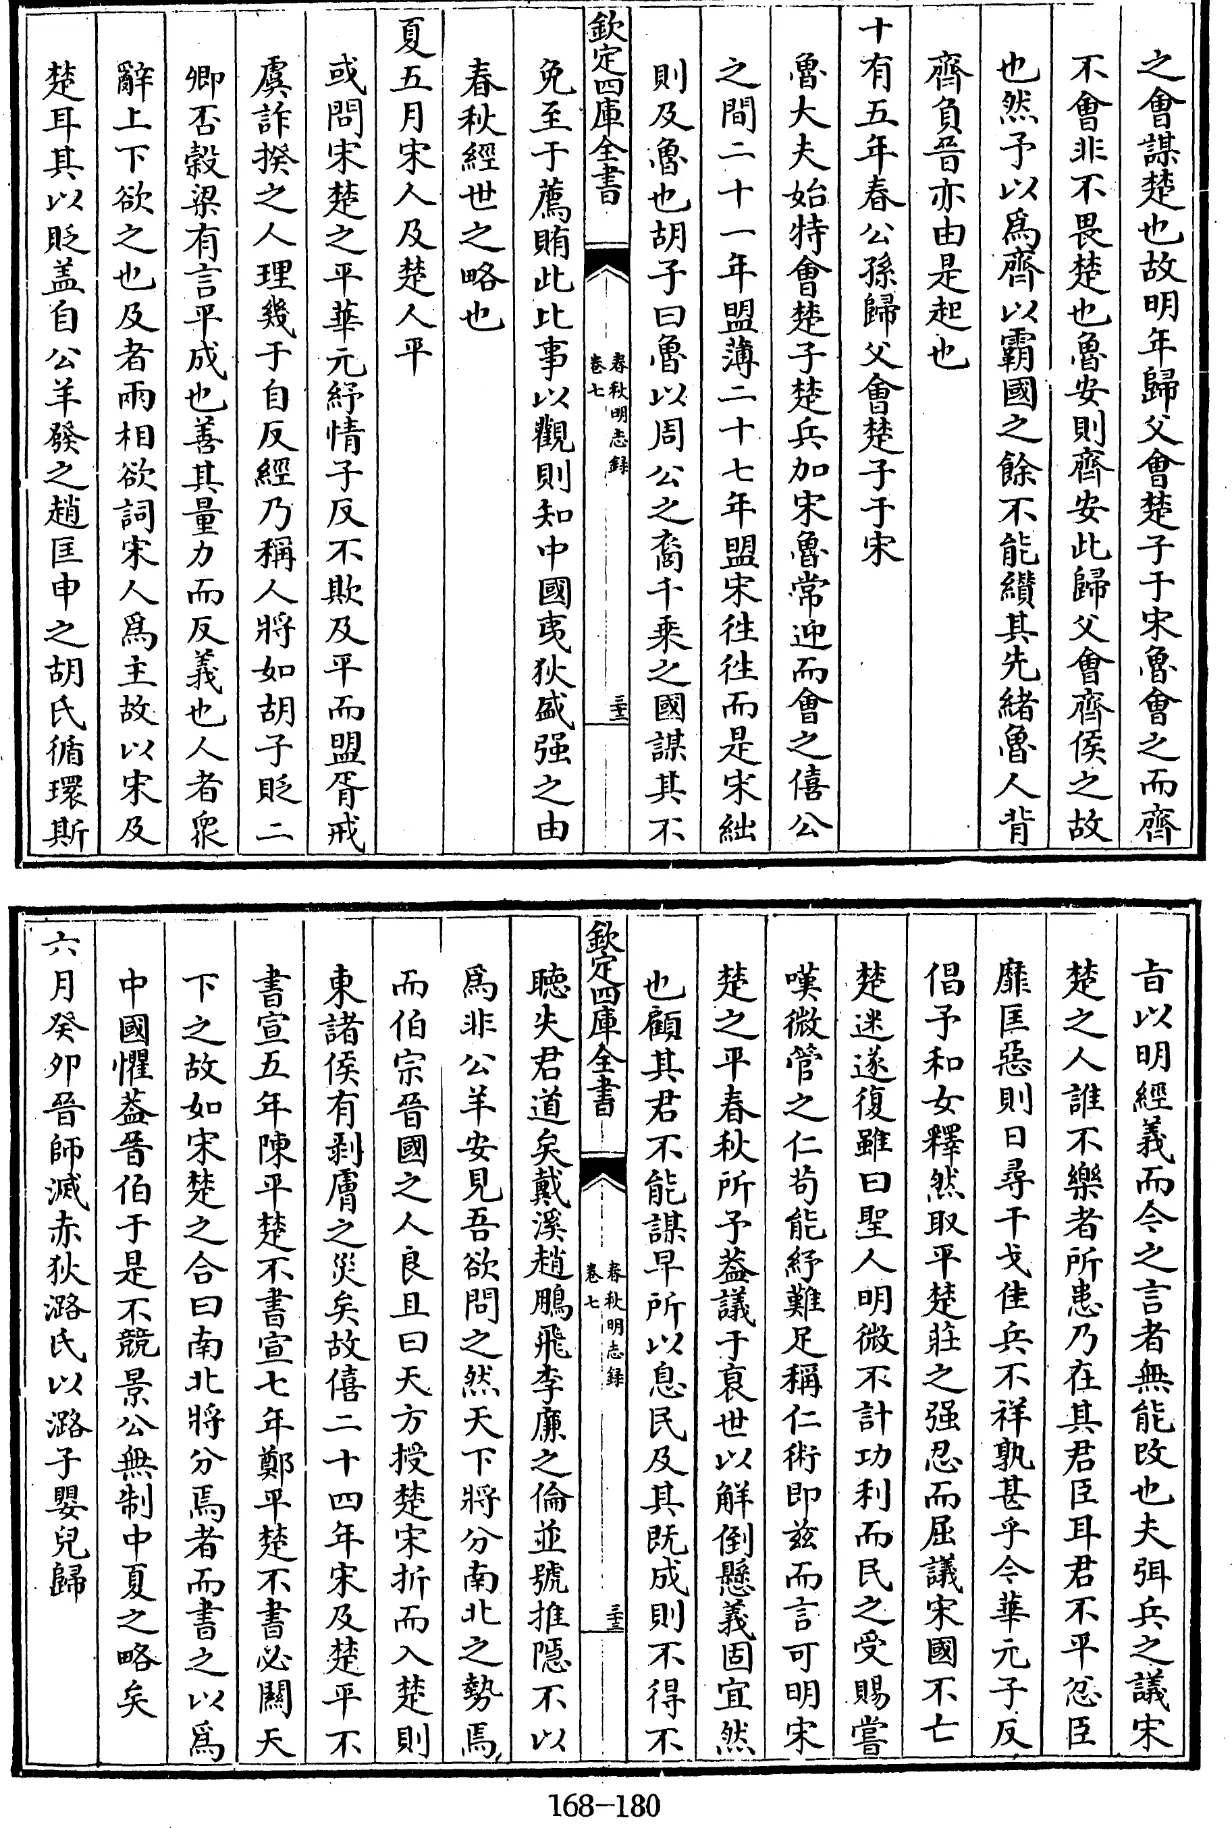 之會謀楚也故明年歸父會楚子于宋魯會之而齊
不會非不畏楚也魯安則齊安此歸父會齊侯之故
也然予以爲齊以霸國之餘不能纘其先緒魯人背
齊負晉亦由是起也
十有五年春公孫歸父會楚子于宋
魯大夫始特會楚子楚兵加宋魯常迎而會之僖公
之間二十一年盟薄二十七年盟宋徃徃而是宋絀
則及魯也胡子曰魯以周公之裔千乘之國謀其不
欽定四庫全書
春秋明志録
卷七
三十三
免至于薦賄此比事以觀則知中國夷狄盛强之由
春秋經世之略也
夏五月宋人及楚人平
或問宋楚之平華元紓情子反不欺及平而盟胥戒
虞詐揆之人理幾于自反經乃稱人將如胡子貶二
卿否榖梁有言平成也善其量力而反義也人者衆
辭上下欲之也及者兩相欲詞宋人爲主故以宋及
楚耳其以貶盖自公羊發之趙匡申之胡氏循環斯
旨以明經義而今之言者無能改也夫弭兵之議宋
楚之人誰不樂者所患乃在其君臣耳君不平忿臣
靡匡惡則日尋干戈佳兵不祥孰甚乎今華元子反
倡予和女釋然取平楚莊之强忍而屈議宋國不亡
楚迷遂復雖曰聖人明微不計功利而民之受賜嘗
嘆微管之仁茍能紓難足稱仁術即兹而言可明宋
楚之平春秋所予葢議于衰世以解倒懸義固宜然
也顧其君不能謀早所以息民及其既成則不得不
欽定四庫全書
春秋明志録
卷七
三十三
聽失君道矣戴溪趙鵬飛李廉之倫並號推隠不以
爲非公羊安見吾欲問之然天下將分南北之勢焉
而伯宗晉國之人良且曰天方授楚宋折而入楚則
東諸侯有剥膚之災矣故僖二十四年宋及楚平不
書宣五年陳平楚不書宣七年鄭平楚不書必關天
下之故如宋楚之合曰南北將分焉者而書之以爲
中國懼葢晉伯于是不競景公無制中夏之略矣
六月癸卯晉師滅赤狄潞氏以潞子嬰兒歸
168-180